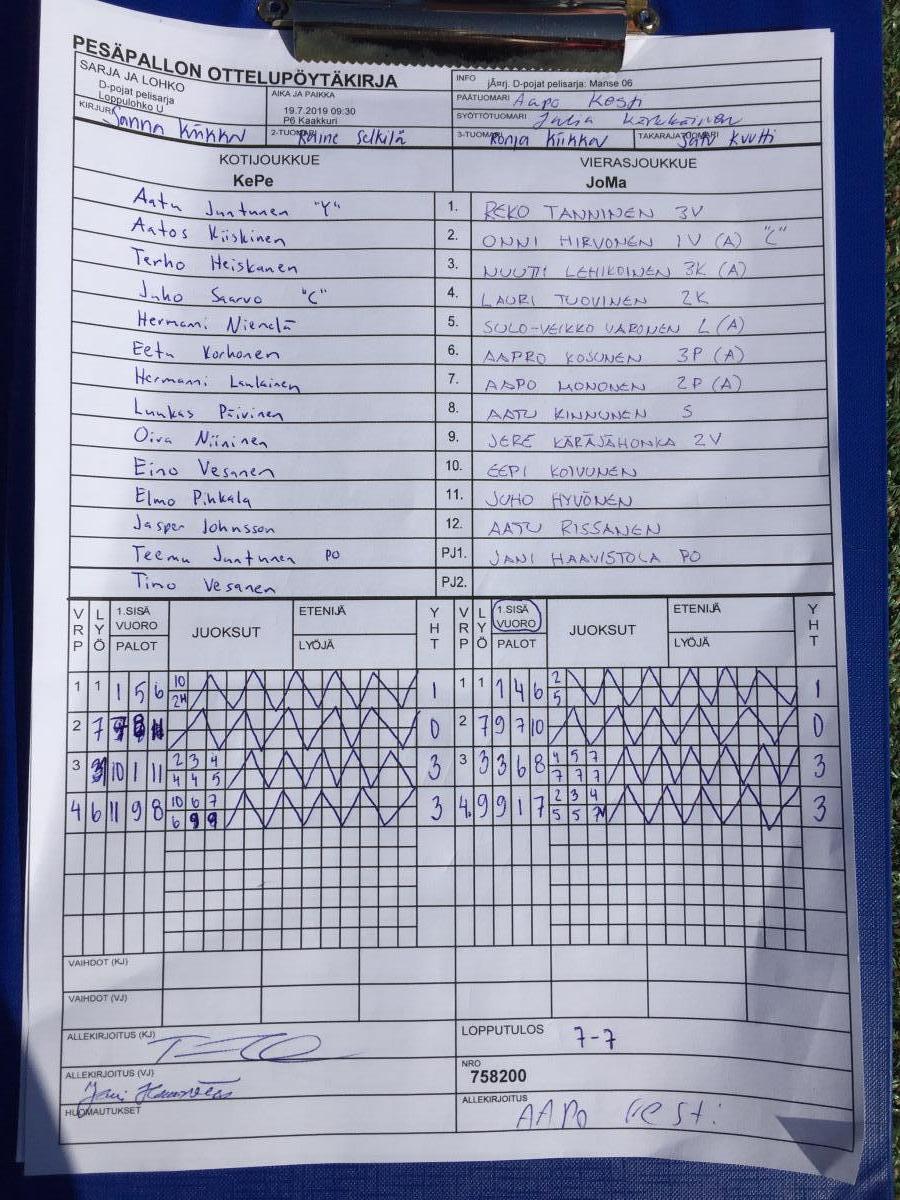 PESÄPALLON OTTELUPÖYTÄKIRJA
SARJA JA LOHKO
D-pojat pelisarja
Loppulohko U
AIKA JA PAIKKA
19.7.2019 09:30
P6 Kaakkuri
INFO jÃ¤rj. D-pojat pelisarja: Manse 06
PÄÄTUOMARI Aapo Kesti
SYÖTTÖTUOMARI Julia
KIRJURI Sanna Kiikkor
2-TUOMARI Raine Selkilä
3-TUOMARI Ronja Kiikkor
TAKARAJATUOMARI Satu Kuutti
KOTIJOUKKUE VIERASJOUKKUE
KePe JoMa
Aatu Juntunen "Y" 1. REKO TANNINEN 3V
Aatos Kiiskinen 2. ONNI HIRVONEN 1V (A) "C"
Terho Heiskanen 3. NUUTTI LEHIKOINEN 3K (A)
Juho Saarvo "C" 4. LAURI TUOVINEN 2K
Hermanni Nienelä 5. SULO-VEIKKO VARONEN L (A)
Eetu Korhonen 6. AAPRO KOSUNEN 3P (A)
Hermanni Laulainen 7. AAPO MONONEN 2P (A)
Luukas Päivinen 8. AATU KINNUNEN S
Oiva Niininen 9. JERE KÄRÄJÄHONKA 2V
Eino Vesanen 10. EEPI KOIVUNEN
Elmo Pihkala 11. JUHO HYVÖNEN
Jasper Johnsson 12. AATU RISSANEN
Teemu Juntunen PO PJ1. JANI HAAVISTOLA PO
Timo Vesanen PJ2.
VRP LYÖ 1.SISÄ VUORO PALOT JUOKSUT ETENIJÄ LYÖJÄ YHT VRP LYÖ 1.SISÄ VUORO PALOT JUOKSUT ETENIJÄ LYÖJÄ YHT
10 2
1 1 1 5 6 1 1 1 1 4 6 1
2H 5
2 7 0 2 7 9 7 10 0
2 3 4 4 5 7
3 3 10 1 11 3 3 3 3 6 8 3
4 4 5 7 7 7
10 6 7 2 3 4
4 6 11 9 8 3 4. 9 9 1 7 3
6 9 9 5 5 7
VAIHDOT (KJ)
VAIHDOT (VJ)
ALLEKIRJOITUS (KJ)
LOPPUTULOS 7-7
ALLEKIRJOITUS (VJ)
NRO
758200
HUOMAUTUKSET
ALLEKIRJOITUS
AAPO Kesti